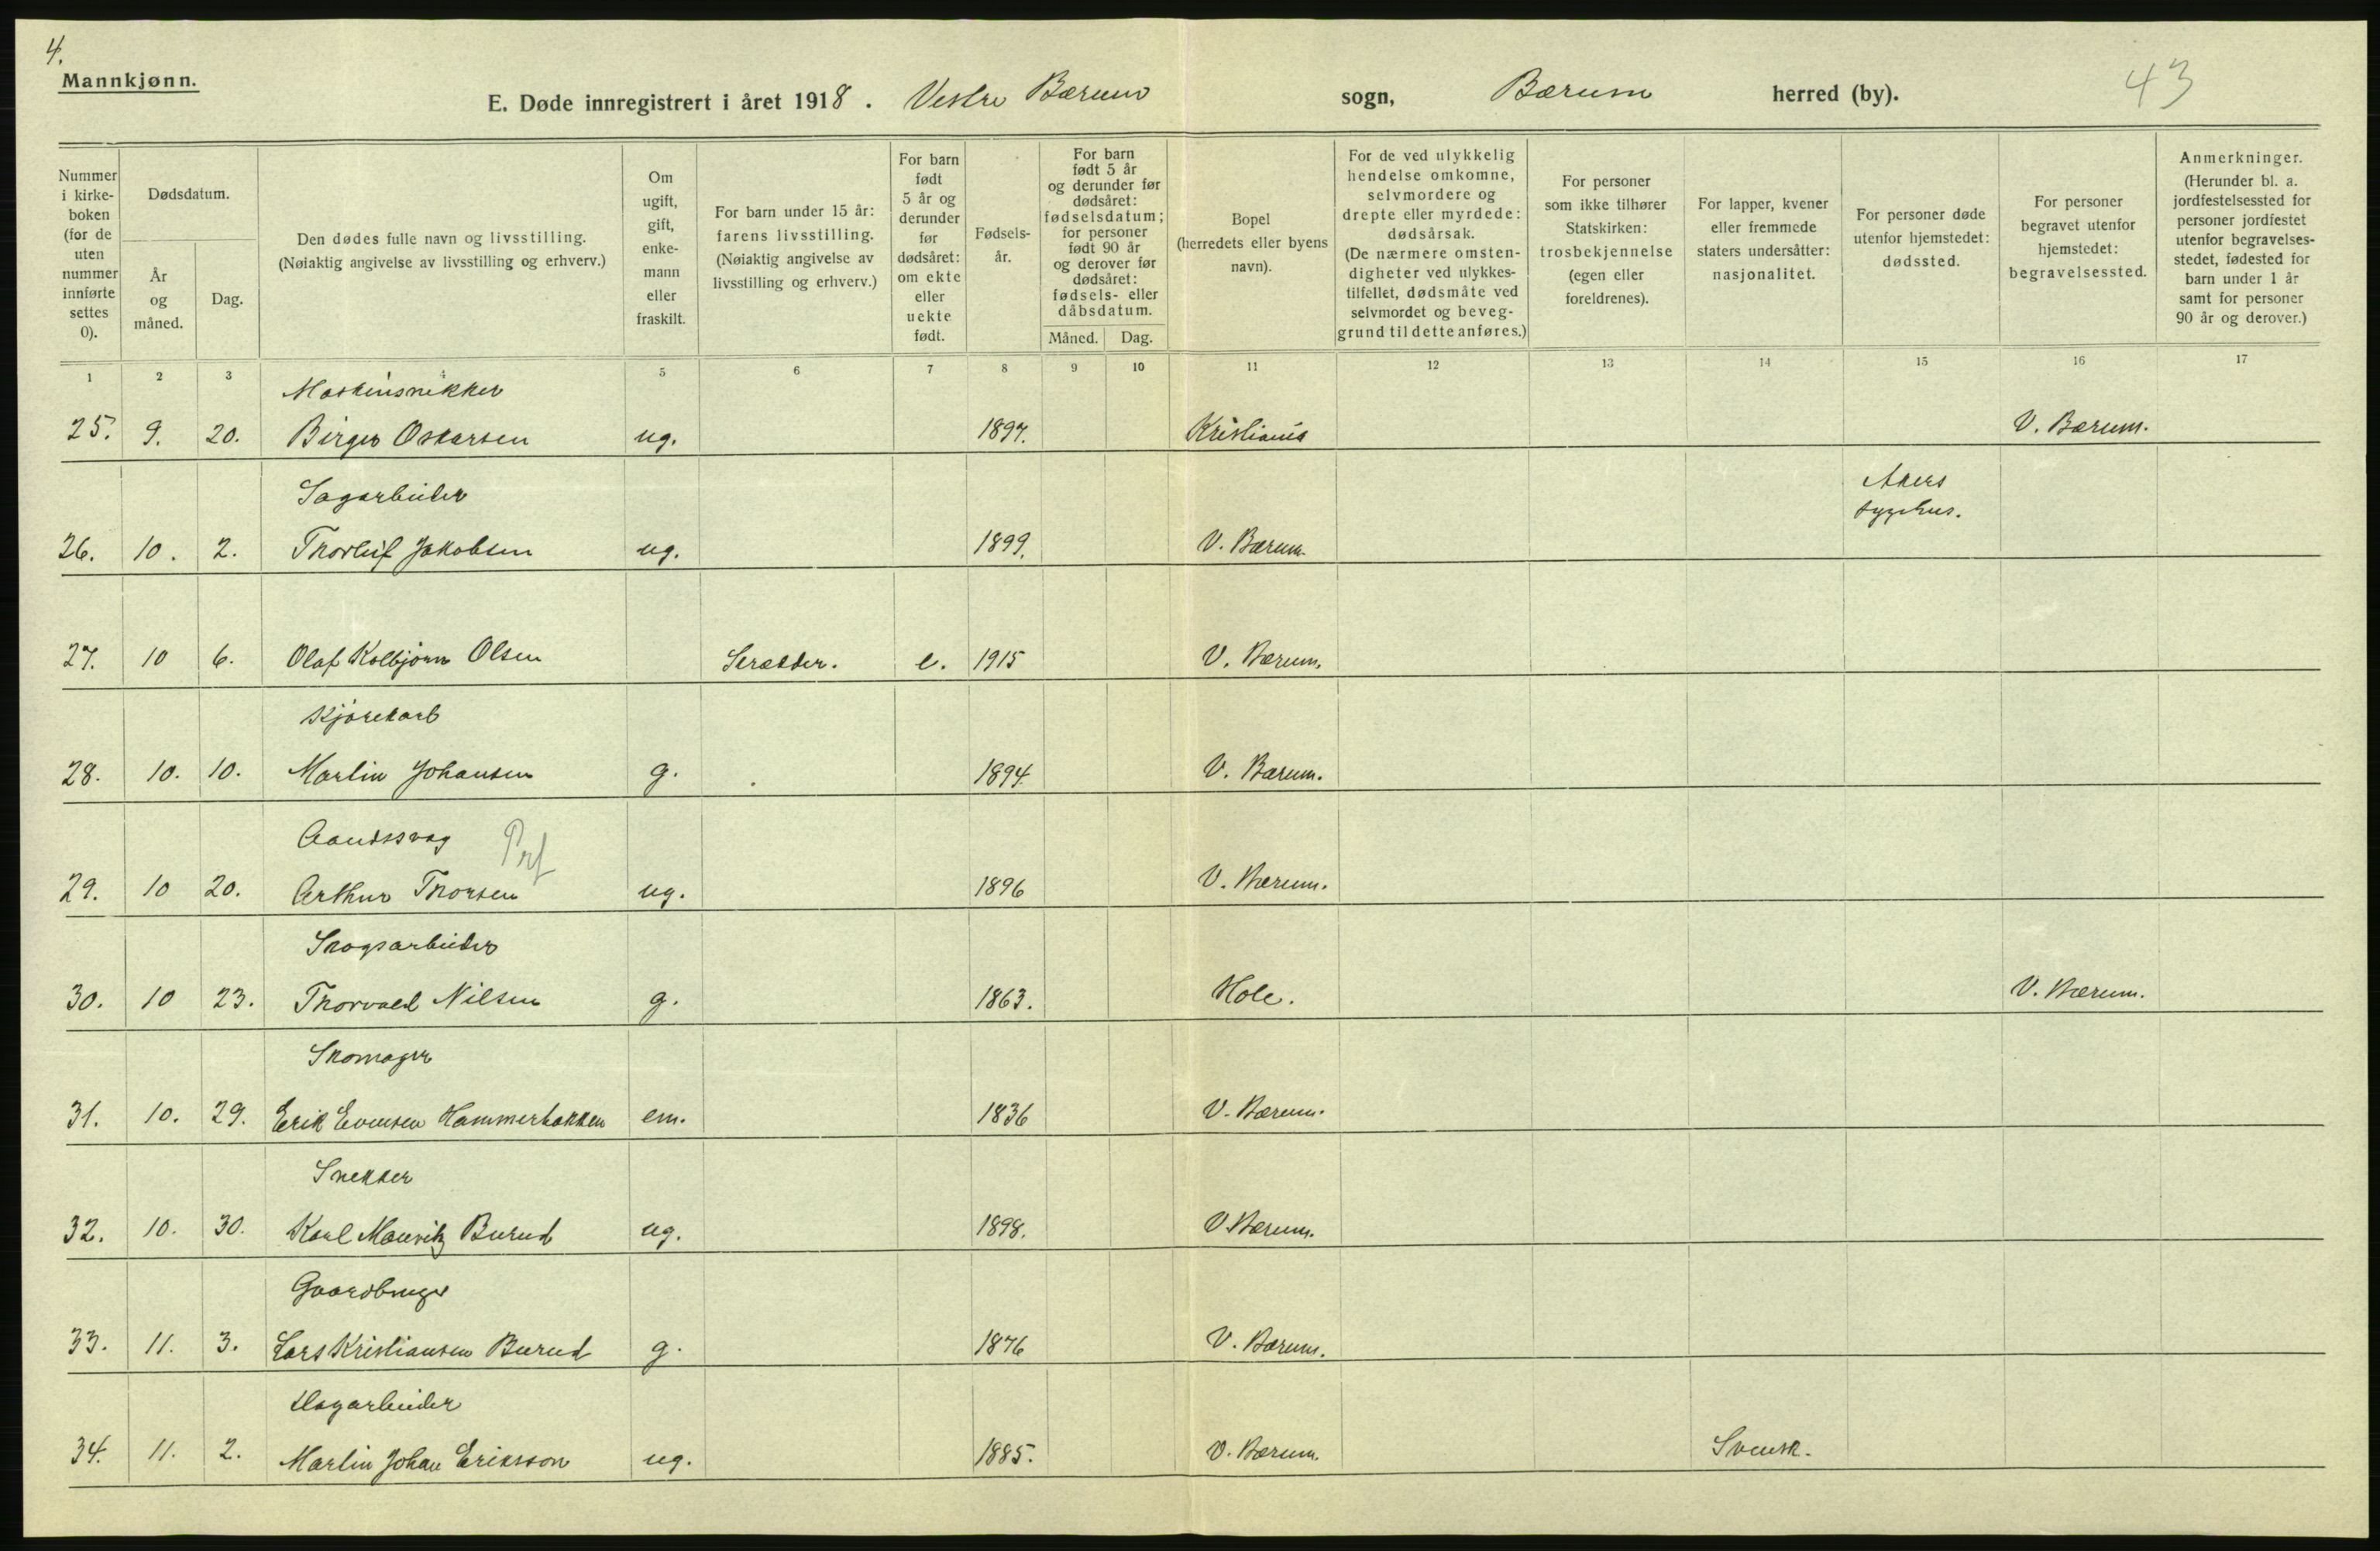 4.
Mannkjønn.
E. Døde innregistrert i året 1918. Vestre Bærum sogn, Bærum herred (by).
43
Nummer i kirke-boken (for de uten nummer innførte settes 0).
Dødsdatum.
År og måned.
Dag.
Den dødes fulle navn og livsstilling.
(Nøiaktig angivelse av livsstilling og erhverv.)
Om ugift, gift, enke-mann eller fraskilt.
For barn under 15 år: farens livsstilling. (Nøiaktig angivelse av livsstilling og erhverv.)
For barn født 5 år og derunder før dødsåret: om ekte eller uekte født.
Fødsels-år.
For barn født 5 år og derunder før dødsåret: fødselsdatum; for personer født 90 år og derover før dødsåret: fødsels- eller dåbsdatum.
Måned. Dag.
Bopel (herredets eller byens navn).
For de ved ulykkelig hendelse omkomne, selvmordere og drepte eller myrdede: dødsårsak. (De nærmere omsten-digheter ved ulykkes-tilfellet, dødsmåte ved selvmordet og beveg-grund til dette anføres.)
For personer som ikke tilhører Statskirken: trosbekjennelse (egen eller foreldrenes).
For lapper, kvener eller fremmede staters undersåtter: nasjonalitet.
For personer døde utenfor hjemstedet: dødssted.
For personer begravet utenfor hjemstedet: begravelsessted.
Anmerkninger. (Herunder bl. a. jordfestelsessted for personer jordfestet utenfor begravelses-stedet, fødested for barn under 1 år samt for personer 90 år og derover.)
1 2 3 4 5 6 7 8 9 10 11 12 13 14 15 16 17
Maskinsnekker
25. 9. 20. Birger Oskarsen ug. 1897. Kristiania V. Bærum.
Sagarbeider Akers sygehus.
26. 10. 2. Thorleif Jakobsen ug. 1899. V. Bærum.
27. 10 6. Olaf Kolbjørn Olsen Skrædder. e. 1915 V. Bærum.
Kjørekarl
28. 10. 10. Martin Johansen g. 1894. V. Bærum.
Aandssvag Prf
29. 10 20. Arthur Thorsen ug. 1896 V. Bærum.
Skogsarbeider
30. 10 23. Thorvald Nilsen g. 1863. Hole. V. Bærum.
Skomager
31. 10. 29. Erik Evensen Hammerbakken em. 1836 V. Bærum.
Snekker
32. 10. 30. Karl Mauritz Burud ug. 1898. V. Bærum.
Gaardbruger
33. 11. 3. Lars Kristiansen Burud g. 1876 V. Bærum.
34. 11. 2. Martin Johan Eriksson ug. 1885. V. Bærum. Svensk.